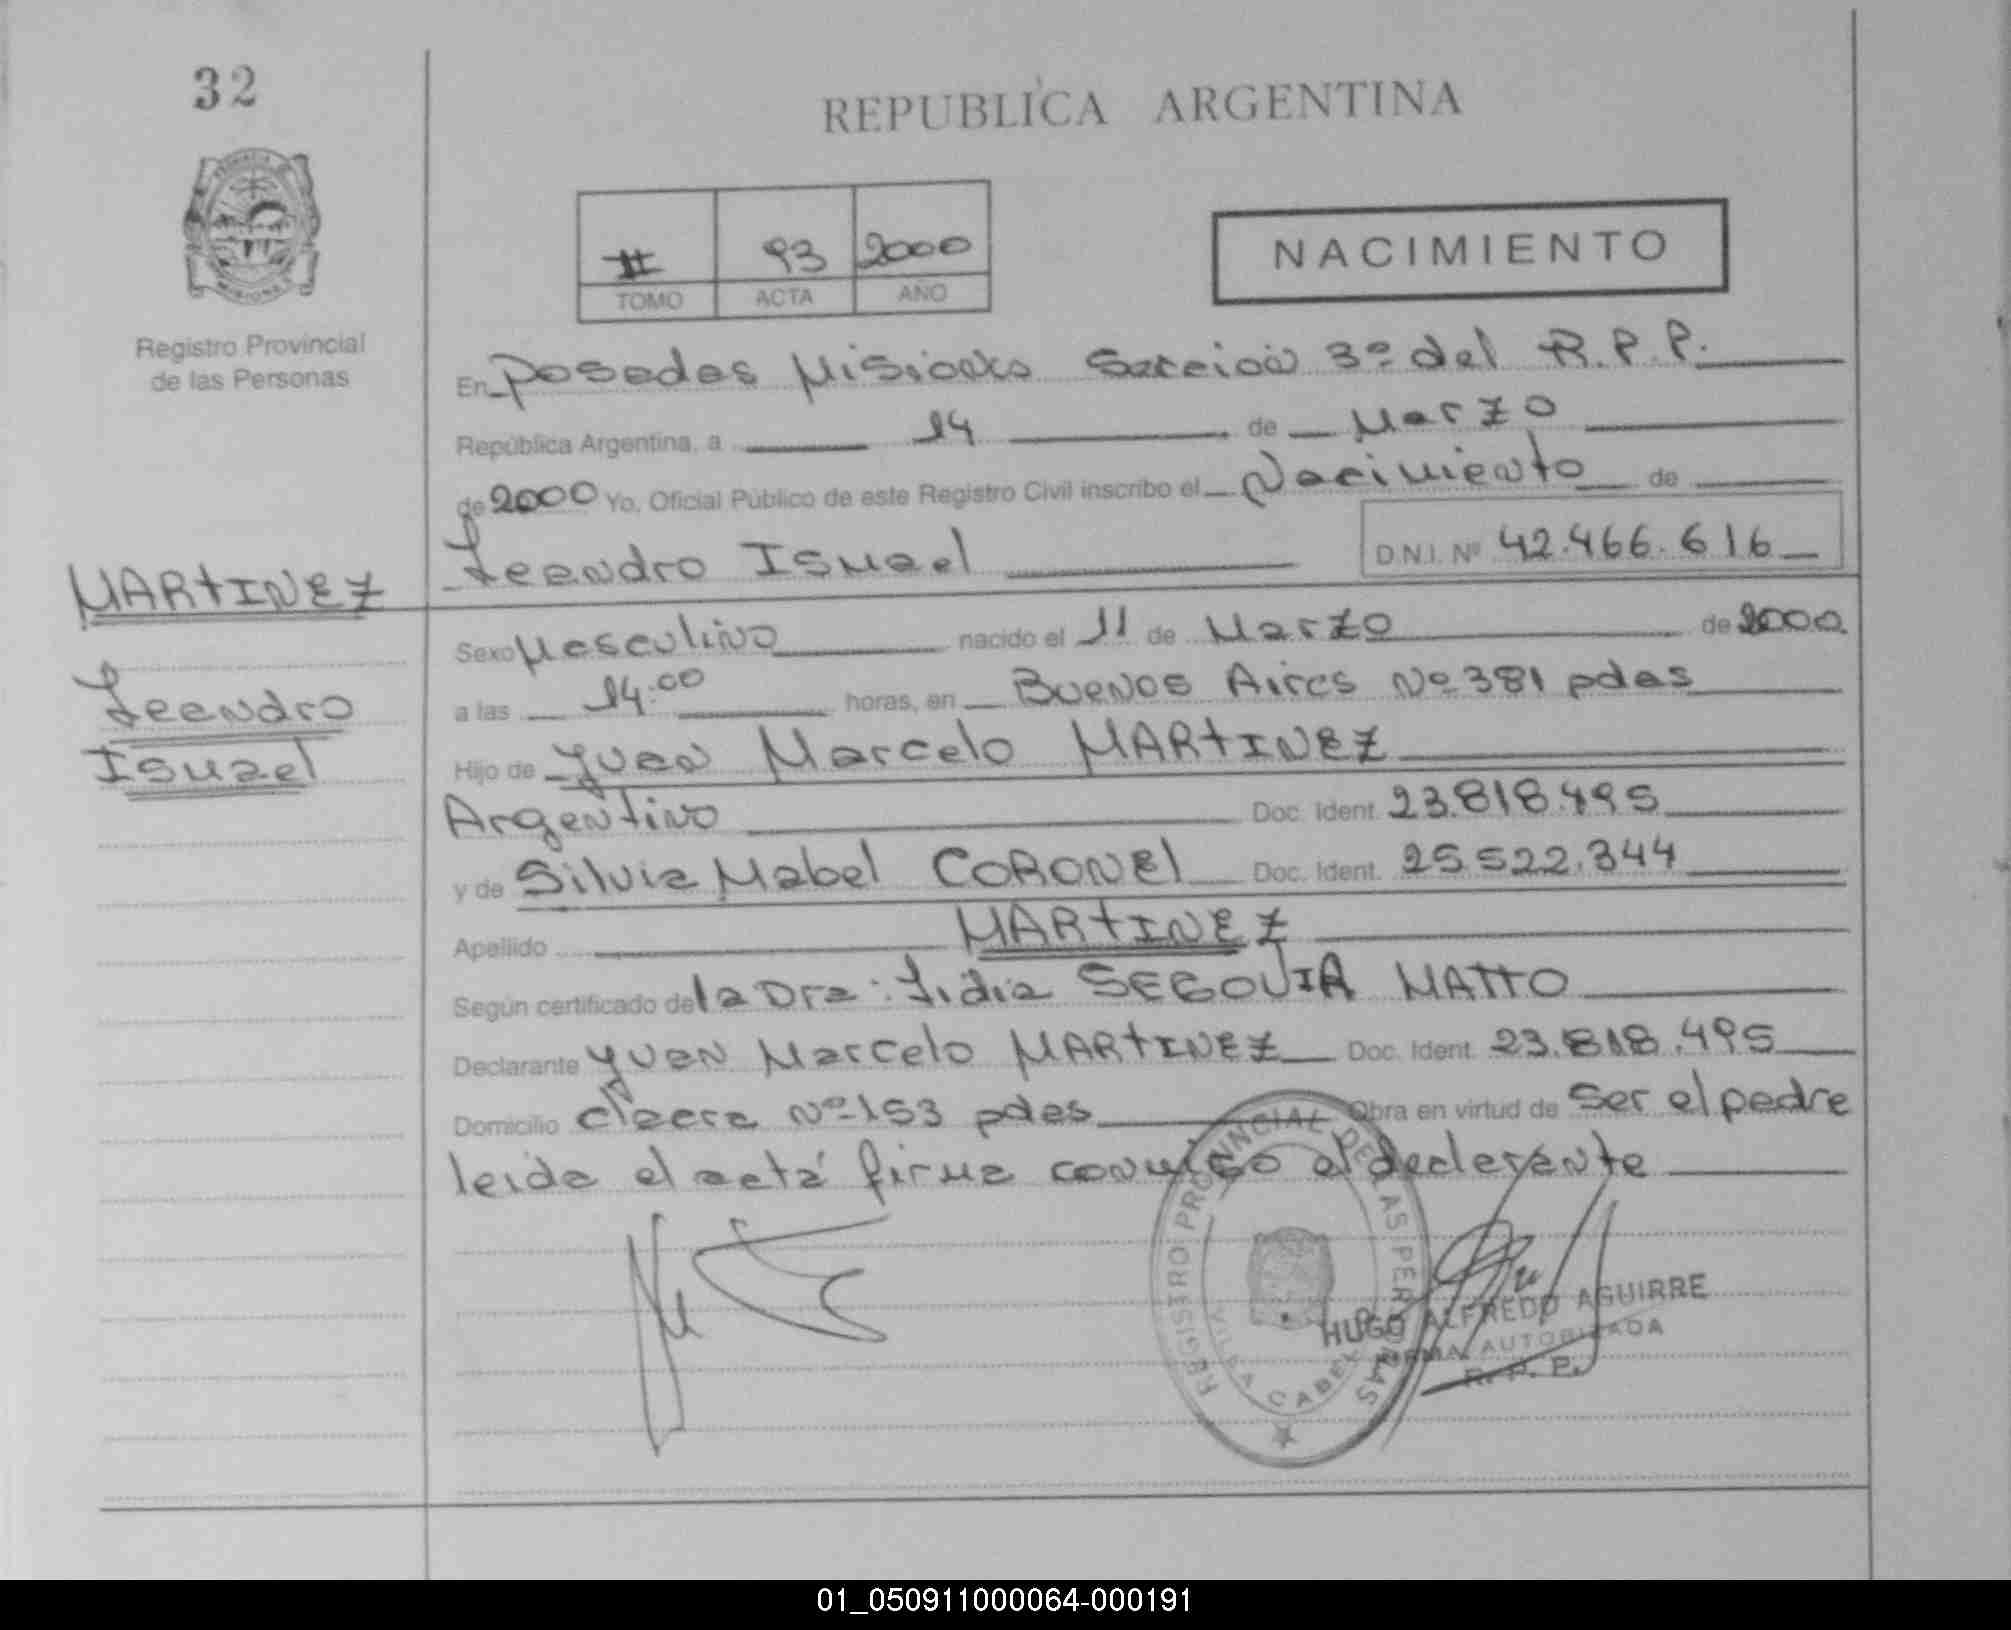 32
REPUBLICA ARGENTINA
II 93 2000
TOMO ACTA AÑO
NACIMIENTO
Registro Provincial
de las Personas
En Posadas Misiones Sección 3º del R.P.P.
República Argentina, a 14 de Marzo
de 2000 Yo, Oficial Público de este Registro Civil inscribo el Nacimiento de
Leandro Ismael D.N.I. Nº 42.466.616
MARTINEZ
Leandro
Ismael
Sexo Masculino nacido el 11 de Marzo de 2000
a las 14:00 horas, en Buenos Aires Nº 381 pdas
Hijo de Yuan Marcelo MARTINEZ
Argentino Doc. Ident. 23.818.495
y de Silvia Mabel CORONEl Doc. Ident. 25.522.344
Apellido MARTINEZ
Según certificado de la Dra: Lidia SEGOVIA MATTO
Declarante Yuan Marcelo MARTINEZ Doc. Ident. 23.818.495
Domicilio claera Nº 153 pdas Obra en virtud de Ser el padre
leida el acta firma conmigo el declarante
REGISTRO PROVINCIAL DE LAS PERSONAS
VILLA CABE
HUGO ALFREDO AGUIRRE
FIRMA AUTORIZADA
R. P. P.
01_050911000064-000191